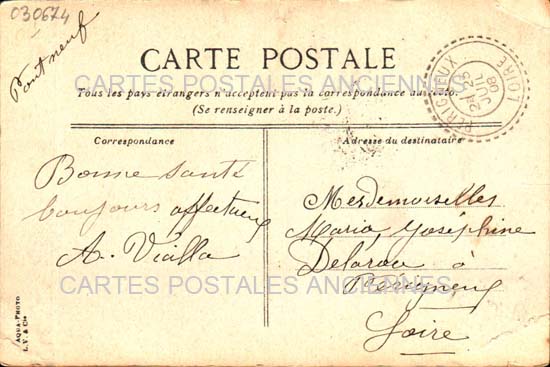 030674
Pont neuf
CARTE POSTALE
CARTES POSTALES ANCIENNES
Tous les pays étrangers n'acceptent pas la correspondance au recto.
(Se renseigner à la poste.)
PERIGNEUX
25
JUIL
08
LOIRE
Correspondance
Adresse du destinataire
Bonne santé
toujours affectueux
A. Vialla
Mesdemoiselles
Maria, Joséphine
à
Périgneux
Loire
CARTES POSTALES ANCIENNES
AQUA-PHOTO
L. V. & Cie